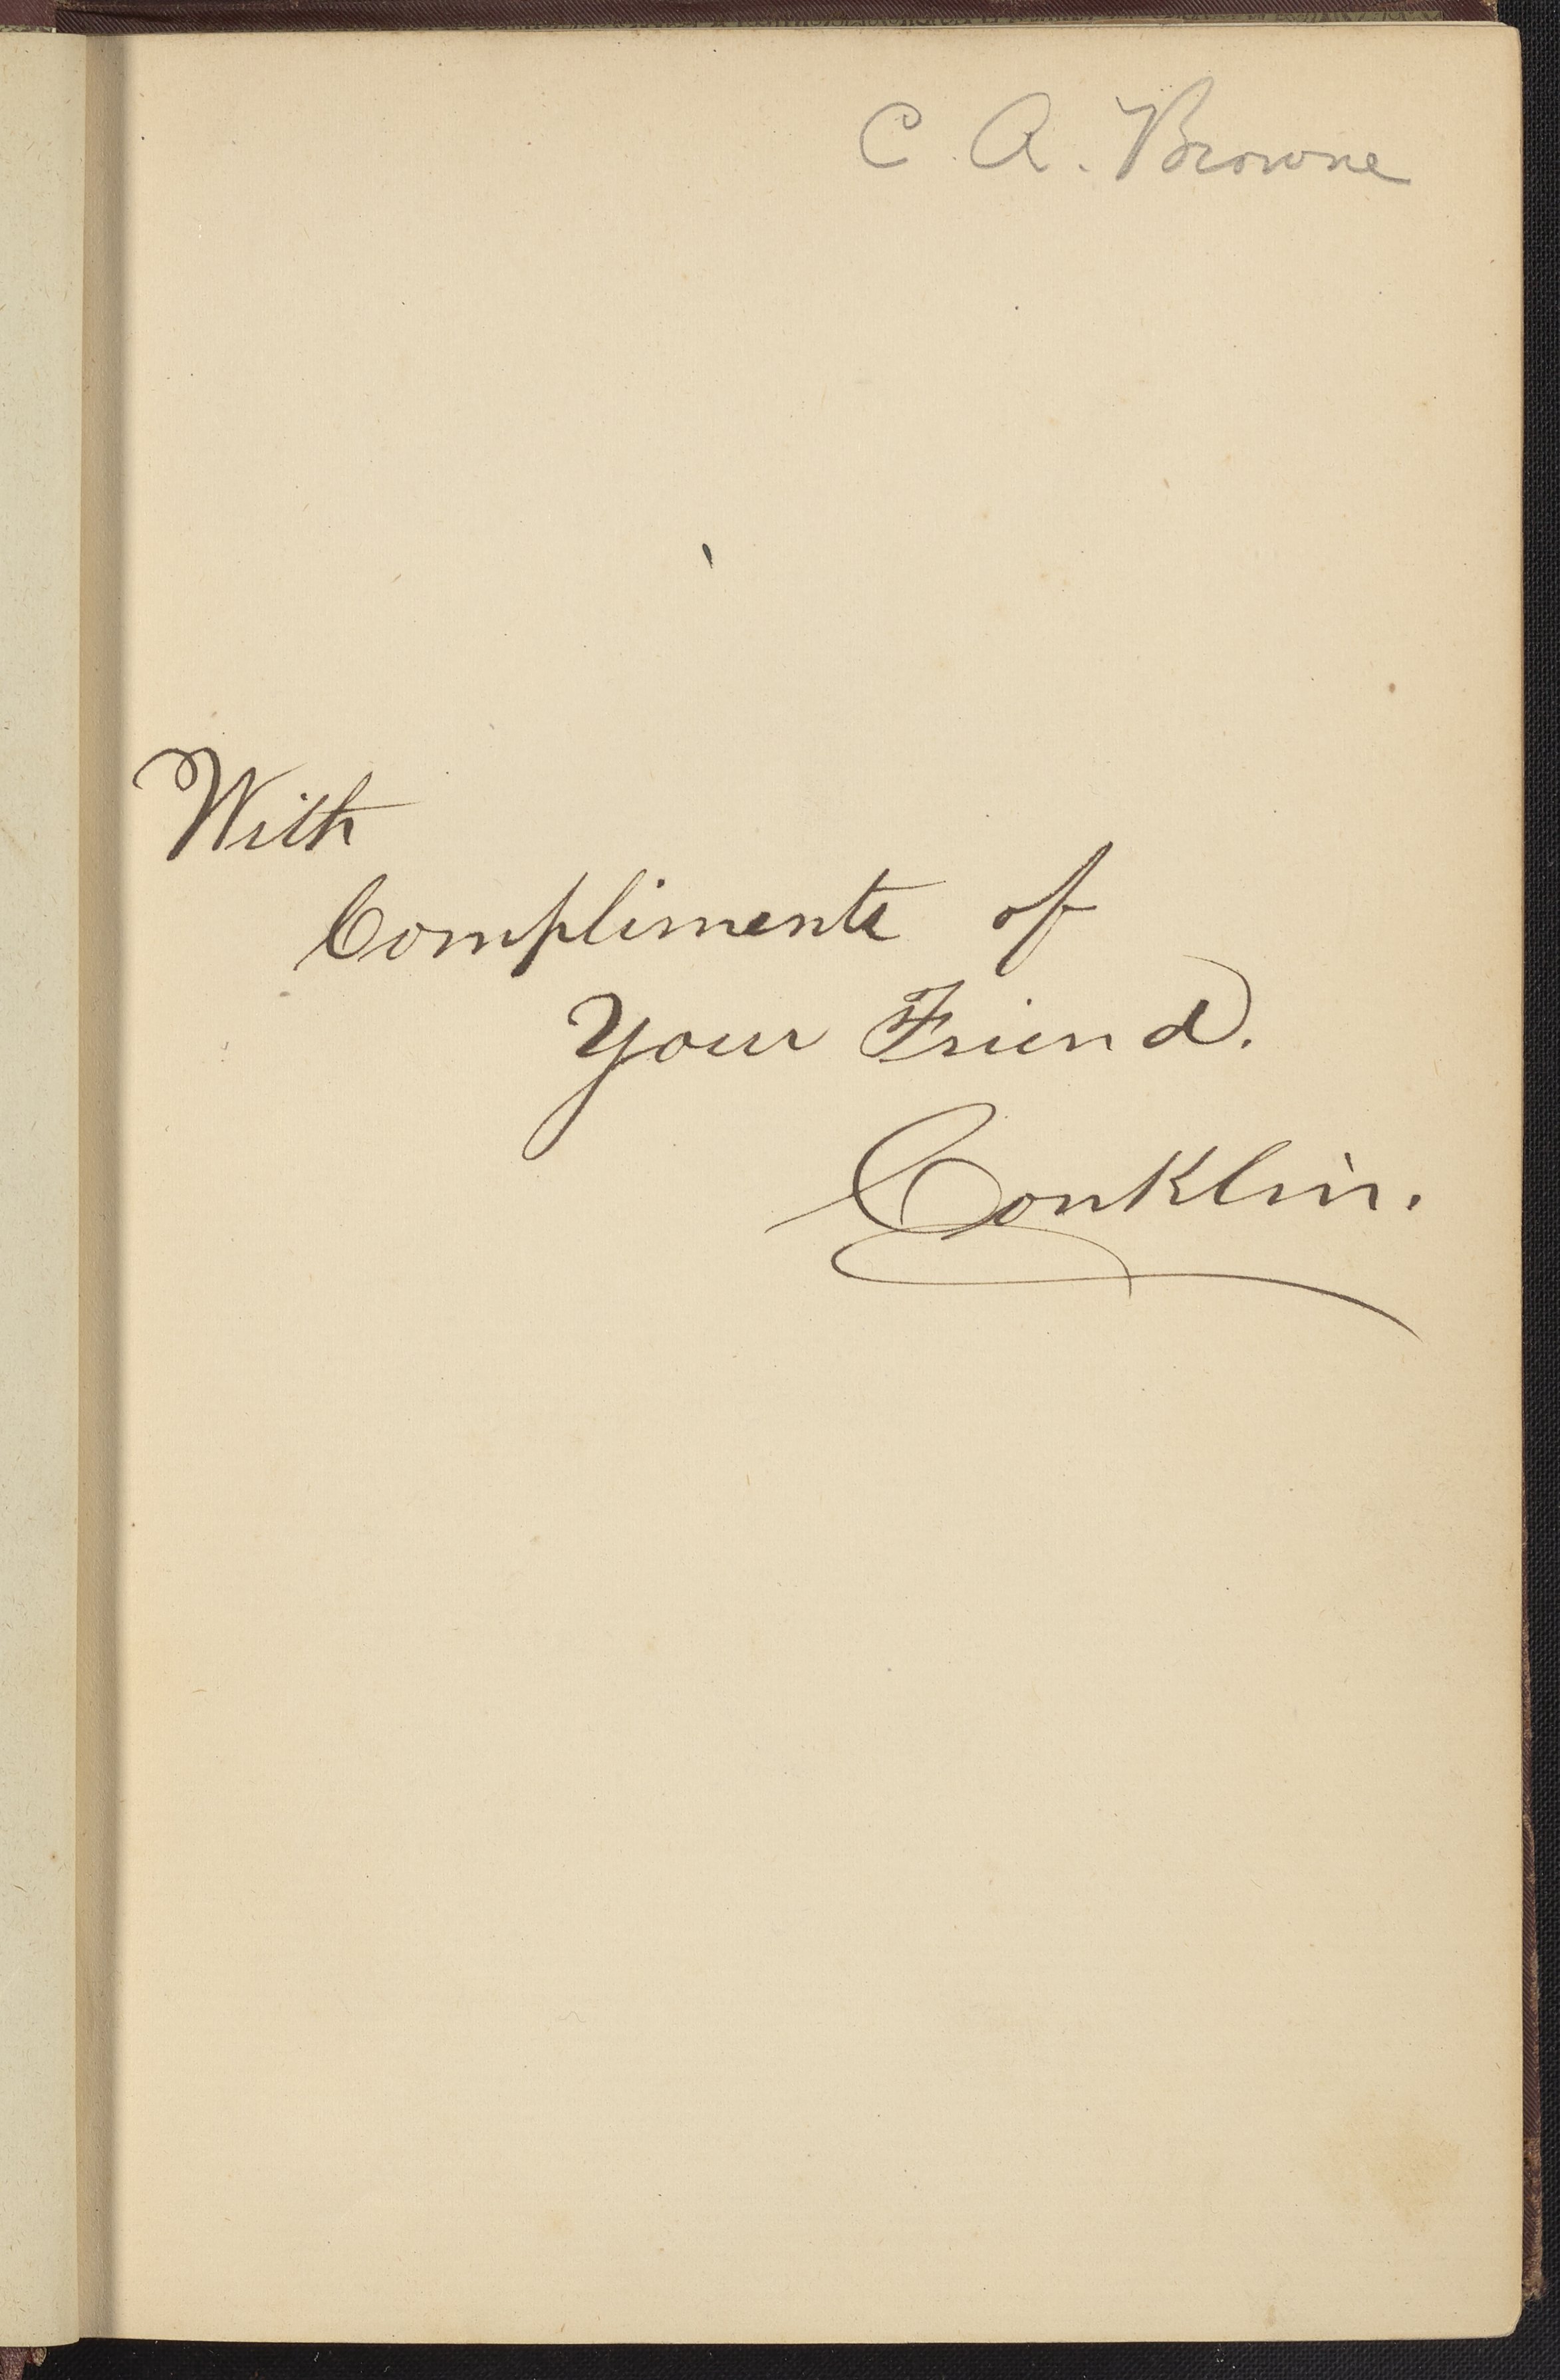 C. A. Browne
With
Compliments of
Your Friend.
Conklin.